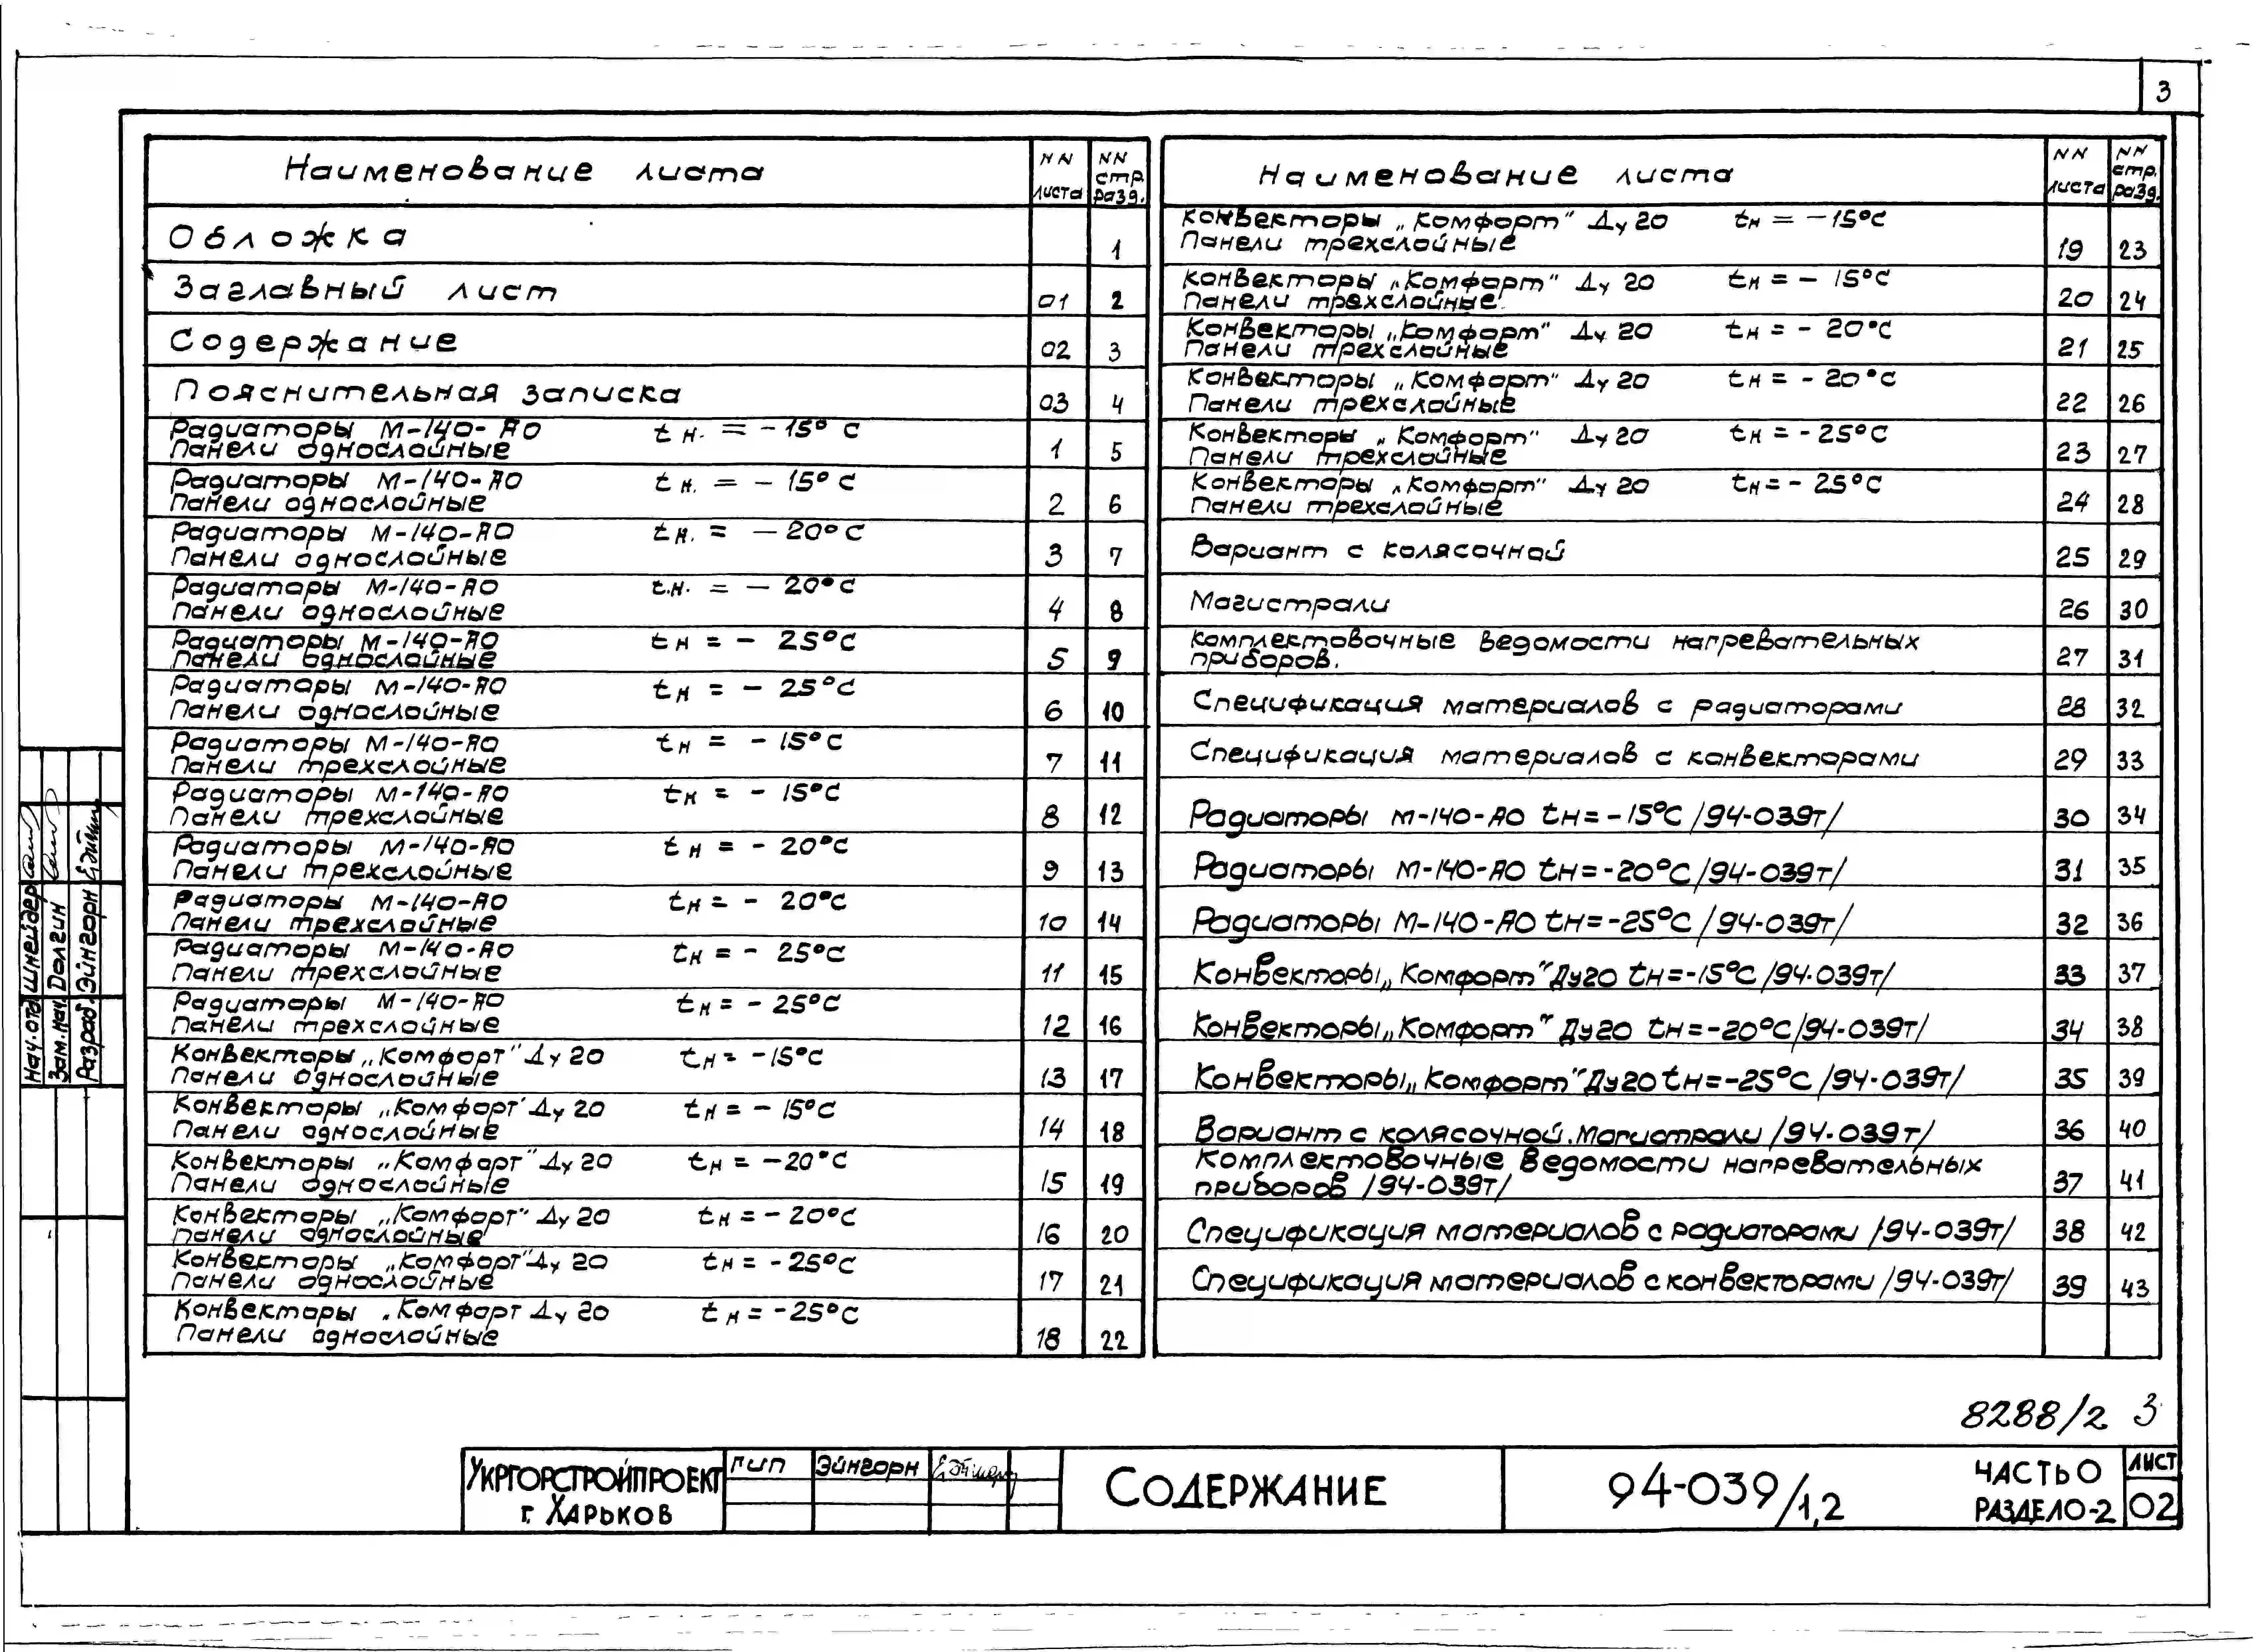 3
Наименование листа
NN листа
NN стр. разд.
Обложка 1
Заглавный лист 01 2
Содержание 02 3
Пояснительная записка 03 4
Радиаторы М-140-АО tн. = -15°С
Панели однослойные 1 5
Радиаторы М-140-АО tн. = -15°С
Панели однослойные 2 6
Радиаторы М-140-АО tн. = -20°С
Панели однослойные 3 7
Радиаторы М-140-АО t.н. = -20°С
Панели однослойные 4 8
Радиаторы М-140-АО tн = -25°С
Панели однослойные 5 9
Радиаторы М-140-АО tн = -25°С
Панели однослойные 6 10
Радиаторы М-140-АО tн = -15°С
Панели трехслойные 7 11
Радиаторы М-140-АО tн = -15°С
Панели трехслойные 8 12
Радиаторы М-140-АО tн = -20°С
Панели трехслойные 9 13
Радиаторы М-140-АО tн = -20°С
Панели трехслойные 10 14
Радиаторы М-140-АО tн = -25°С
Панели трехслойные 11 15
Радиаторы М-140-АО tн = -25°С
Панели трехслойные 12 16
Конвекторы „Комфорт" Ду 20 tн = -15°С
Панели однослойные 13 17
Конвекторы „Комфорт" Ду 20 tн = -15°С
Панели однослойные 14 18
Конвекторы „Комфорт" Ду 20 tн = -20°С
Панели однослойные 15 19
Конвекторы „Комфорт" Ду 20 tн = -20°С
Панели однослойные 16 20
Конвекторы „Комфорт" Ду 20 tн = -25°С
Панели однослойные 17 21
Конвекторы „Комфорт Ду 20 tн = -25°С
Панели однослойные 18 22
Наименование листа
NN листа
NN стр. разд.
Конвекторы „Комфорт" Ду 20 tн = -15°С
Панели трехслойные 19 23
Конвекторы „Комфорт" Ду 20 tн = -15°С
Панели трехслойные 20 24
Конвекторы „Комфорт" Ду 20 tн = -20°С
Панели трехслойные 21 25
Конвекторы „Комфорт" Ду 20 tн = -20°С
Панели трехслойные 22 26
Конвекторы „Комфорт" Ду 20 tн = -25°С
Панели трехслойные 23 27
Конвекторы „Комфорт" Ду 20 tн = -25°С
Панели трехслойные 24 28
Вариант с колясочной 25 29
Магистрали 26 30
Комплектовочные ведомости нагревательных
приборов. 27 31
Спецификация материалов с радиаторами 28 32
Спецификация материалов с конвекторами 29 33
Радиаторы М-140-АО tн=-15°С /94-039т/ 30 34
Радиаторы М-140-АО tн=-20°С /94-039т/ 31 35
Радиаторы М-140-АО tн=-25°С /94-039т/ 32 36
Конвекторы „Комфорт" Ду20 tн=-15°С /94-039т/ 33 37
Конвекторы „Комфорт" Ду20 tн=-20°С /94-039т/ 34 38
Конвекторы „Комфорт" Ду20 tн=-25°С /94-039т/ 35 39
Вариант с колясочной. Магистрали /94-039т/ 36 40
Комплектовочные ведомости нагревательных
приборов /94-039т/ 37 41
Спецификация материалов с радиаторами /94-039т/ 38 42
Спецификация материалов с конвекторами /94-039т/ 39 43
Нач. отд. Шнейдер
Зам. нач. Долгин
Разраб. Эйнгорн
8288/2 3
Укргорстройпроект
г. Харьков
ГИП Эйнгорн
Содержание
94-039/1,2
Часть 0
Раздел 0-2
Лист
02